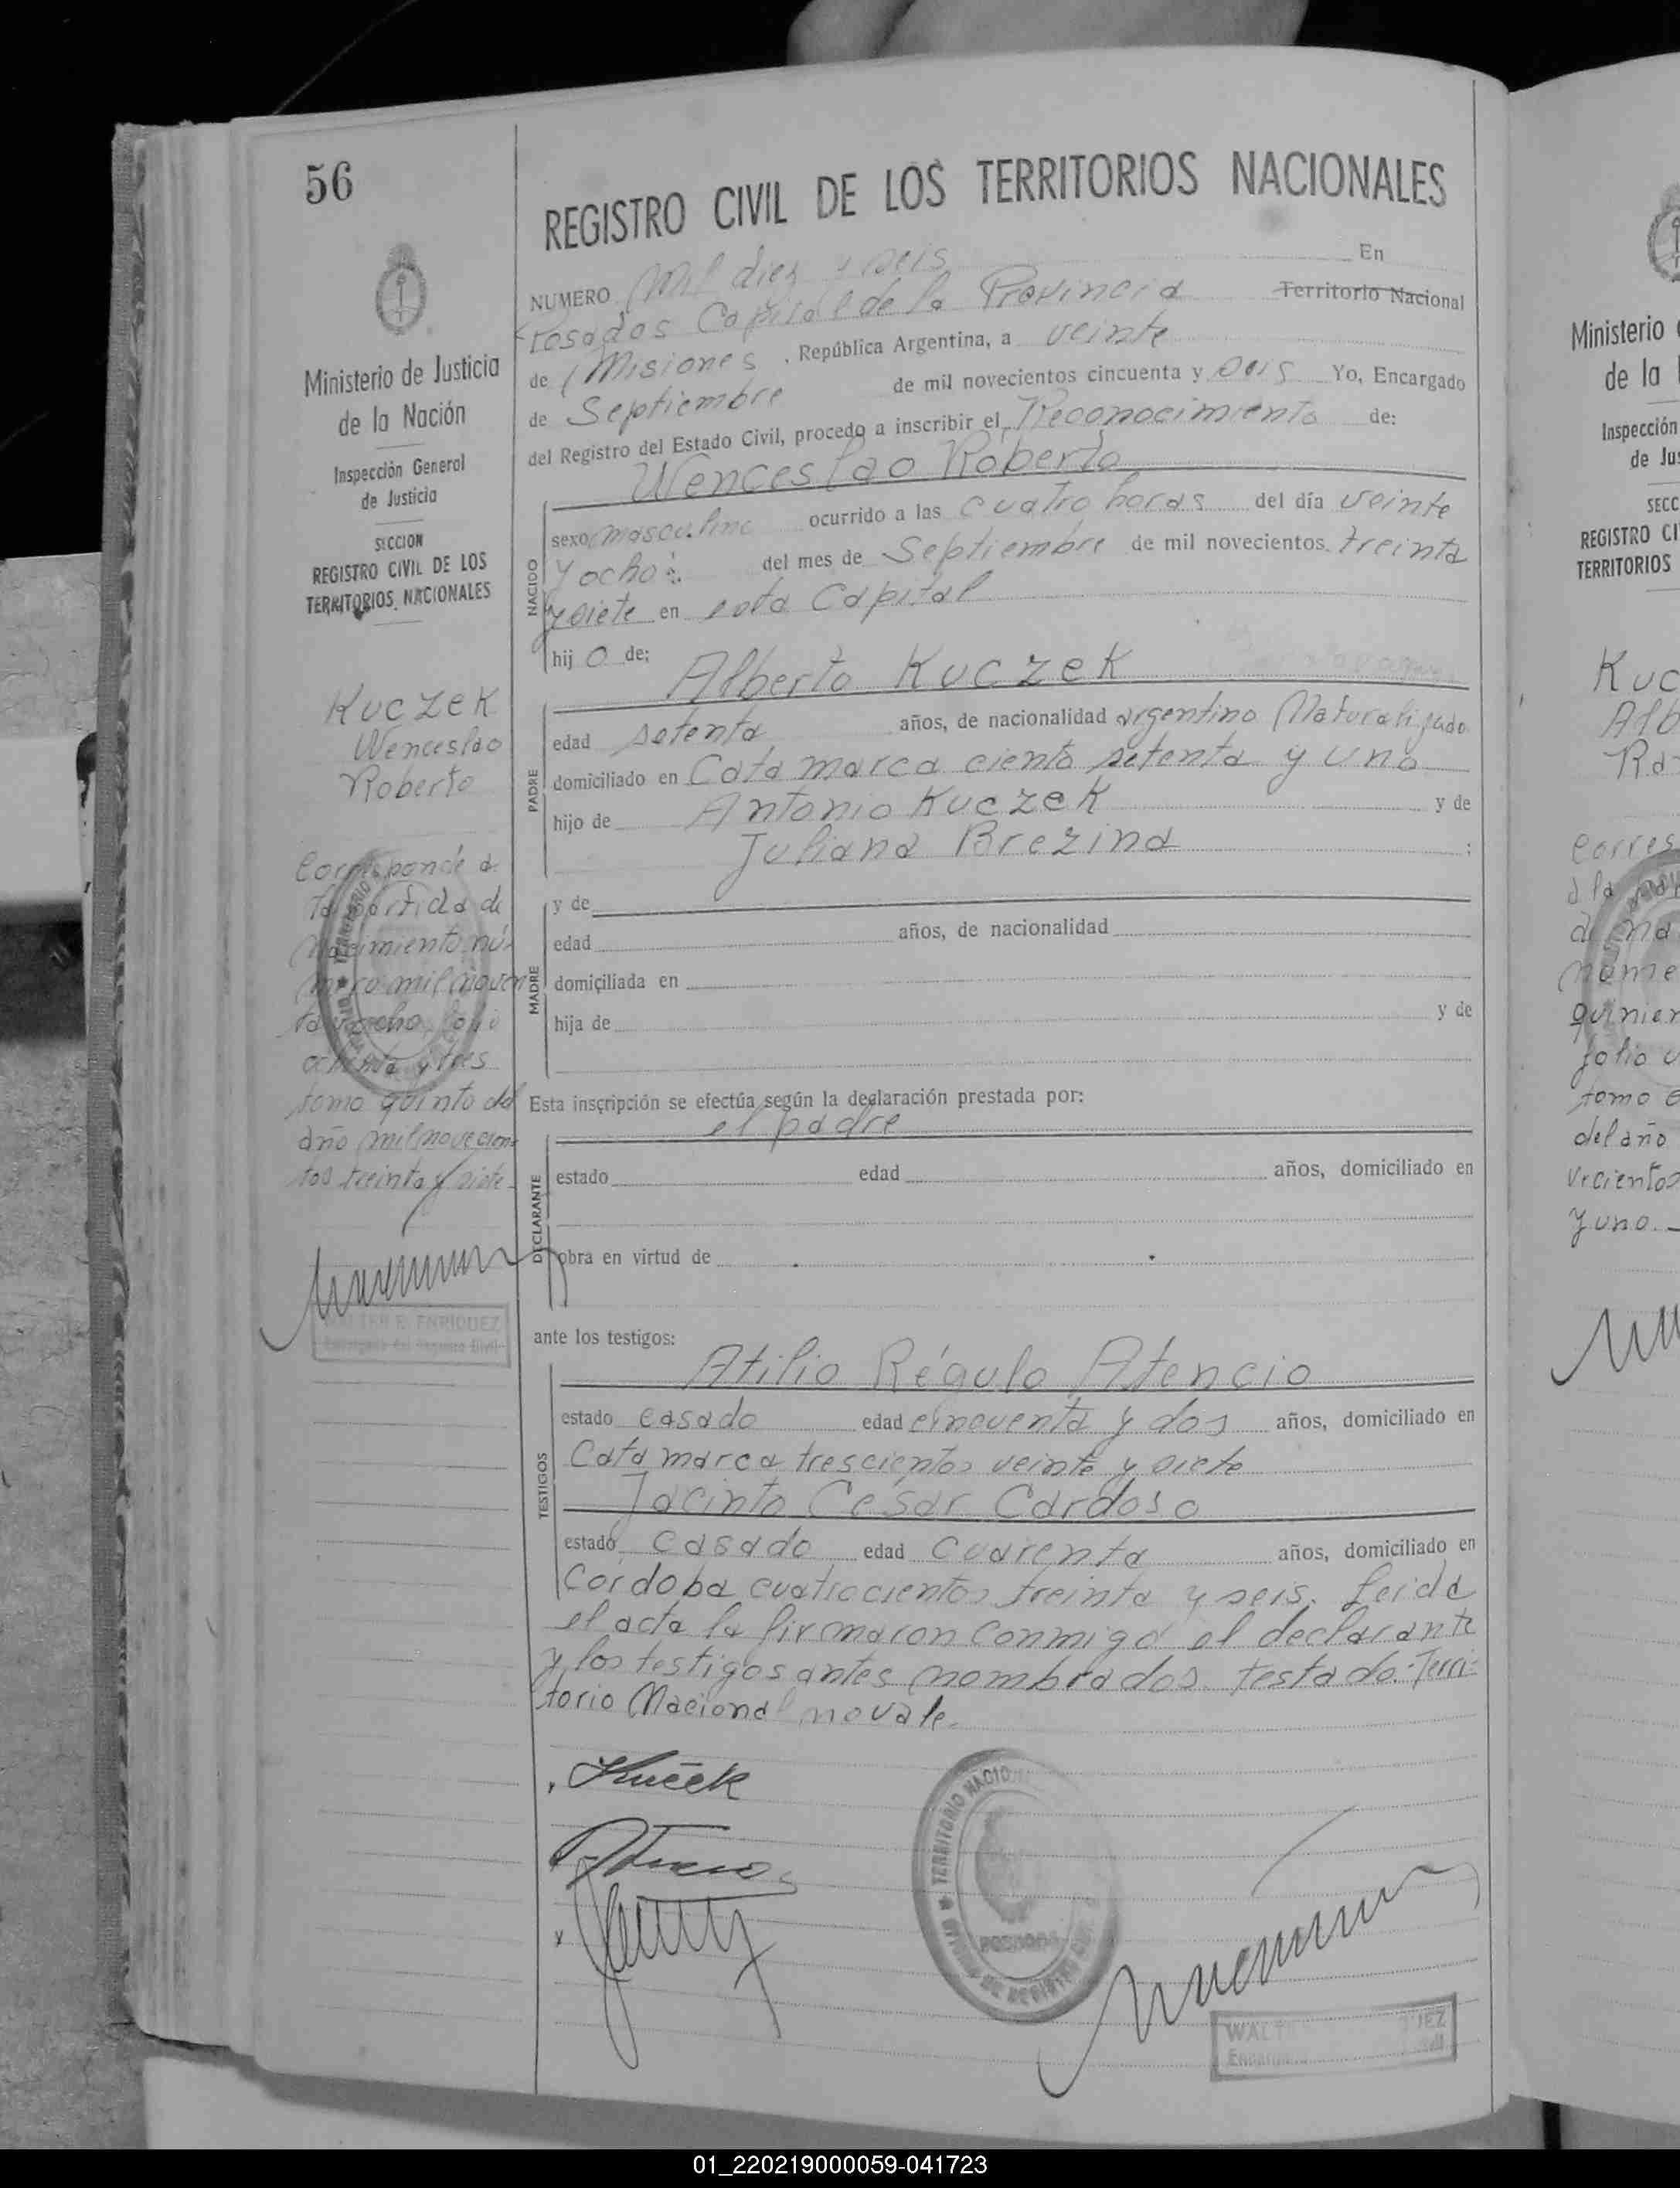 56
REGISTRO CIVIL DE LOS TERRITORIOS NACIONALES
NUMERO Mil diez y seis En
Posadas Capital de la Provincia Territorio Nacional
de Misiones, República Argentina, a veinte
de Septiembre de mil novecientos cincuenta y seis Yo, Encargado
del Registro del Estado Civil, procedo a inscribir el Reconocimiento de:
Wenceslao Roberto
NACIDO
sexo masculino ocurrido a las cuatro horas del día veinte
y ocho del mes de Septiembre de mil novecientos treinta
y siete en esta Capital
hijo de:
Alberto Kuczek
PADRE
edad setenta años, de nacionalidad argentino Naturalizado
domiciliado en Catamarca ciento setenta y uno
hijo de Antonio Kuczek y de
Juliana Brezina ;
MADRE
y de
edad años, de nacionalidad
domiciliada en
hija de y de
Esta inscripción se efectúa según la declaración prestada por:
el padre
DECLARANTE
estado edad años, domiciliado en
obra en virtud de
ante los testigos:
Atilio Régulo Atencio
TESTIGOS
estado casado edad cincuenta y dos años, domiciliado en
Catamarca trescientos veinte y siete
Jacinto César Cardoso
estado casado edad cuarenta años, domiciliado en
Córdoba cuatrocientos treinta y seis. Leida
el acta la firmaron conmigo el declarante
y los testigos antes nombrados. Testado: Terri-
torio Nacional no vale.
Kuček
TERRITORIO NACIO
POSADAS
WAL
Ministerio de Justicia
de la Nación
Inspección General
de Justicia
SECCION
REGISTRO CIVIL DE LOS
TERRITORIOS NACIONALES
Kuczek
Wenceslao
Roberto
Corresponde a
la partida de
nacimiento nú-
mero mil noven
ta y ocho, folio
ochenta y tres
tomo quinto del
año mil novecien
tos treinta y siete
WALTER E. ENRIQUEZ
Encargado del Registro Civil
Ministerio
de la
Inspección
de Jus
SECC
REGISTRO CI
TERRITORIOS
Kuc
Alb
Corres
a la par
de na
núme
quinien
folio
tomo
del año
y uno.
01_220219000059-041723